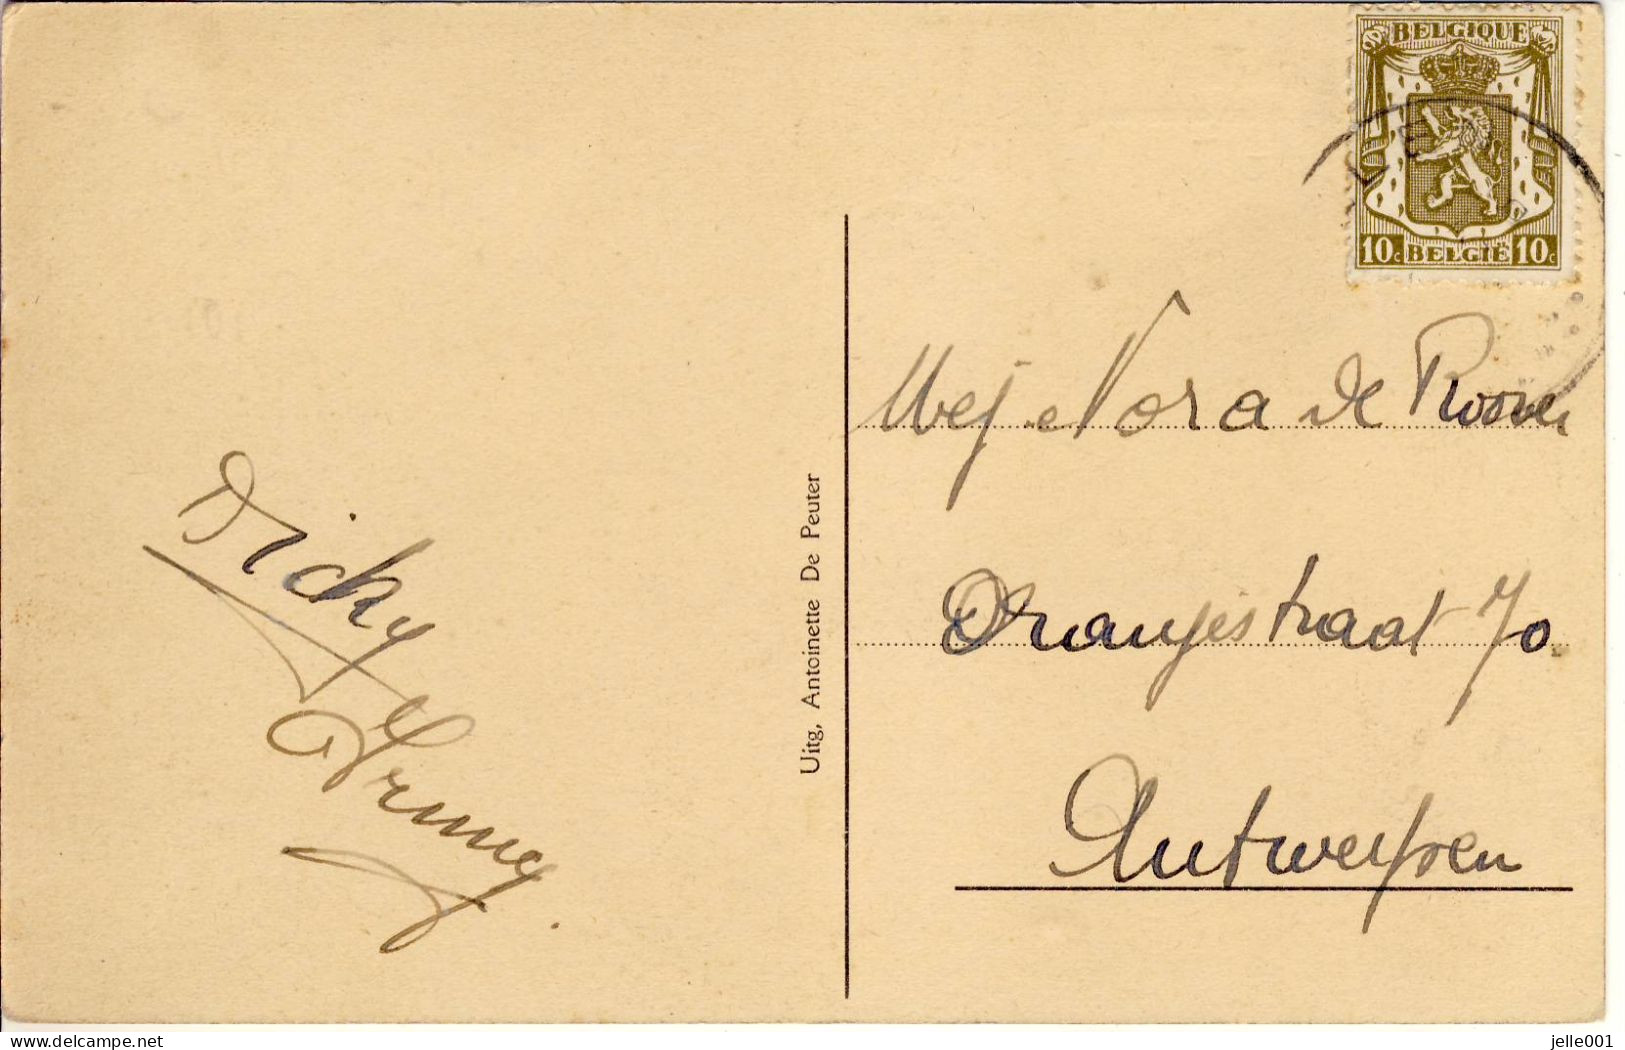 BELGIQUE
10c BELGIË 10c
Mej. Nora de Roover
Oranjestraat 70
Antwerpen
Uitg, Antoinette De Peuter
Dicky
delcampe.net
jelle001